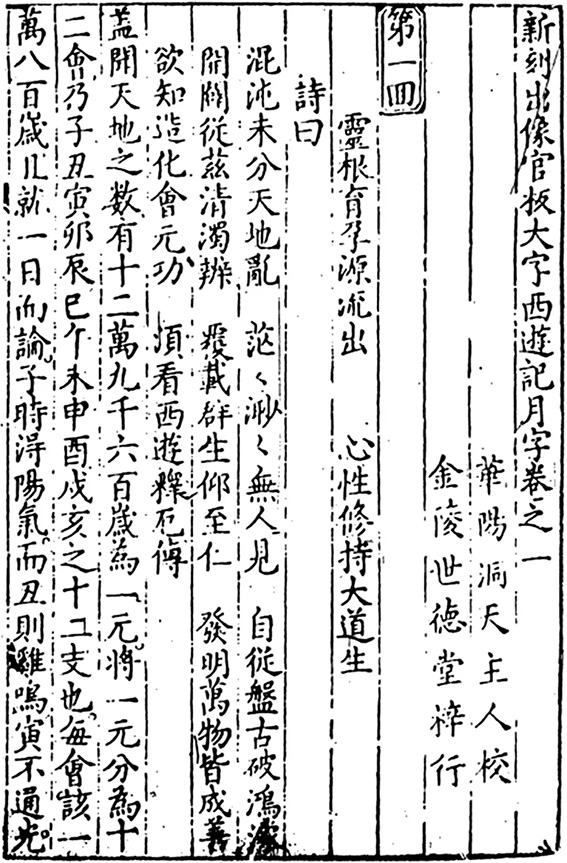 新刻出像官板大字西遊記月字卷之一
華陽洞天主人校
金陵世德堂梓行
第一回
靈根育孕源流出 心性修持大道生
詩曰
混沌未分天地亂 茫々渺々無人見 自從盤古破鴻濛
開闢從茲清濁辨 覆載群生仰至仁 發明萬物皆成善
欲知造化會元功 須看西遊釋厄傳
盖聞天地之数有十二萬九千六百歲為一元將一元分為十
二會乃子丑寅卯辰巳午未申酉戌亥之十二支也每會該一
萬八百歲且就一日而論子時得陽氣而丑則雞鳴寅不通光